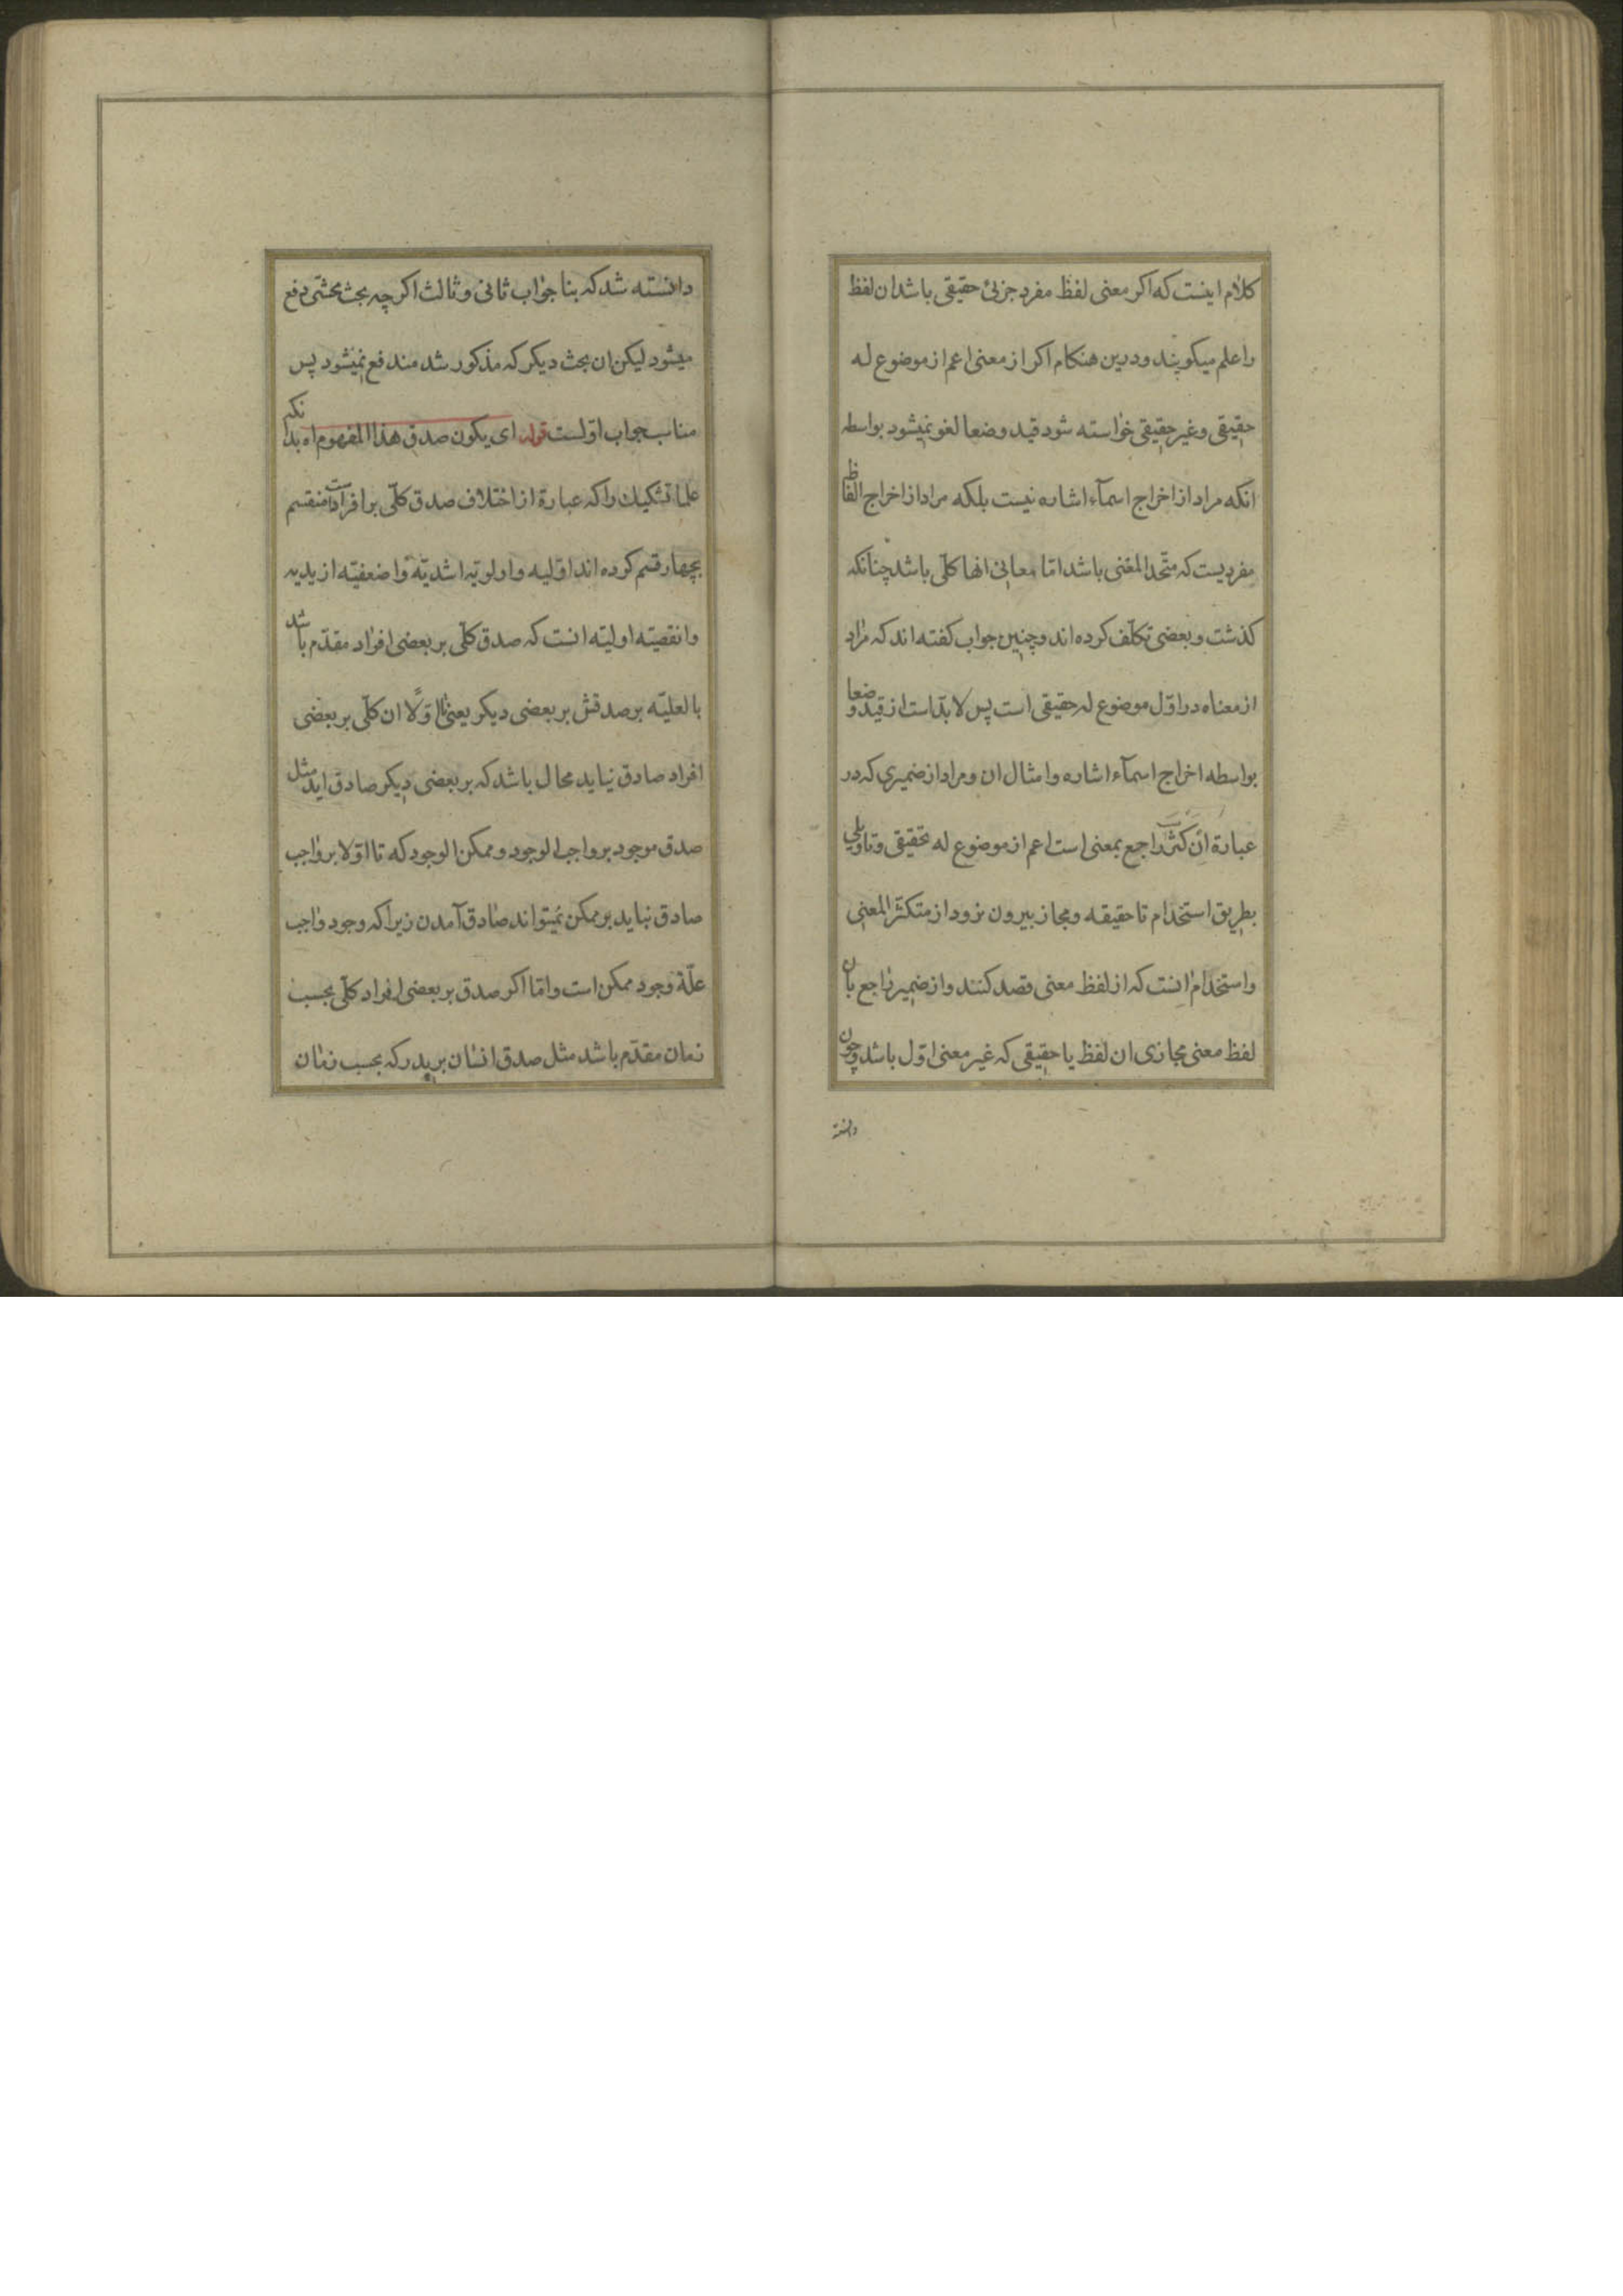 کلام اینست که اکر معنی لفظ مفرد جزئ حقیقی باشد ان لفظ
را علم میکویند و درین هنکام اکر از معنی اعم از موضوع له
حقیقی و غیر حقیقی خواسته شود قید وضعا لغو نمیشود بواسطه
انکه مراد از اخراج اسمآء اشاره نیست بلکه مراد از اخراج الفاظ
مفردیست که متّحد المعنی باشد امّا معانی انها کلّی باشد چنانکه
کذشت و بعضی تکلّف کرده اند و چنین جواب کفته اند که مراد
از معناه در اوّل موضوع له حقیقی است پس لا بدّ است از قید وضعا
بواسطه اخراج اسمآء اشاره و امثال ان و مراد از ضمیری که در
عبارة ان کثر است راجع بمعنی است اعم از موضوع له تحقیقی و تاویلی
بطریق استخدام تا حقیقه و مجاز بیرون نرود از متکثّر المعنی
و استخدام انست که از لفظ معنی قصد کنند و از ضمیر راجع بان
لفظ معنی مجازی ان لفظ یا حقیقی که غیر معنی اوّل باشد و چون
دانسته
دانسته شد که بنا جواب ثانی و ثالث اکر چه بحث محشّی دفع
میشود لیکن ان بحث دیکر که مذکور شد مندفع نمیشود پس
مناسب جواب اوّلست قوله ای یکون صدق هذا المفهوم اه بدانکه
علما تشکیک را که عبارة از اختلاف صدق کلّی بر افراد است منقسم
بچهار قسم کرده اند اوّلیه و اولویّه اشدیّه و اضعفیّه ازیدیه
و انقصیّه اولیّه انست که صدق کلّی بر بعضی افراد مقدّم باشد
بالعلیّه بر صدقش بر بعضی دیکر یعنی تا اوّلًا ان کلّی بر بعضی
افراد صادق نیاید محال باشد که بر بعضی دیکر صادق اید مثل
صدق موجود بر واجب الوجود و ممکن الوجود که تا اوّلا بر واجب
صادق نیاید بر ممکن نمیتواند صادق آمدن زیرا که وجود واجب
علّة وجود ممکن است و امّا اکر صدق بر بعضی افراد کلّی بحسب
زمان مقدّم باشد مثل صدق انسان بر پدر که بحسب زمان